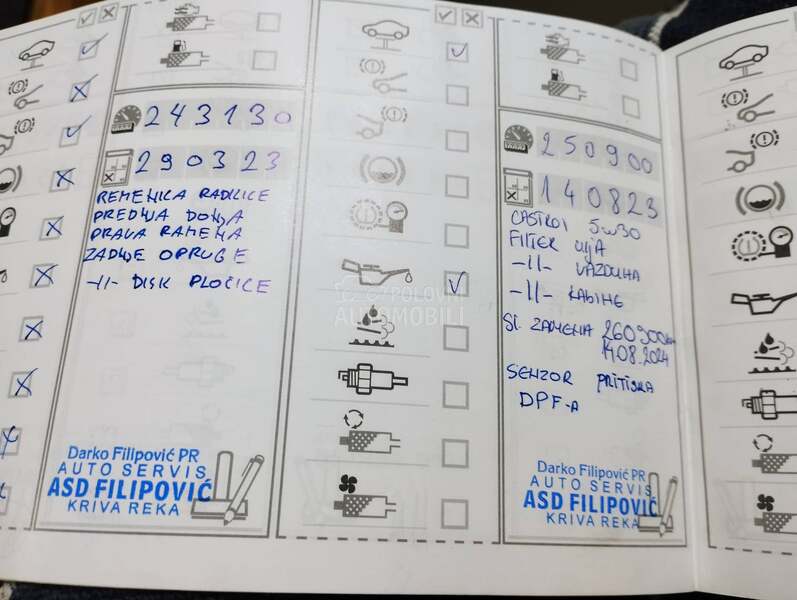 243130
290323
REMENICA RADILICE
PREDNJA DONJA
PRAVA RAMENA
ZADNJE OPRUGE
-11- DISK PLOČICE
Darko Filipović PR
AUTO SERVIS
ASD FILIPOVIĆ
KRIVA REKA
POLOVNI
AUTOMOBILI
250900
140823
CASTROL 5W30
FILTER ULJA
-11- VAZDUHA
-11- KABINE
SL. ZAMENA 260900km
14.08.2024
SENZOR PRITISKA
DPF-A
Darko Filipović PR
AUTO SERVIS
ASD FILIPOVIĆ
KRIVA REKA